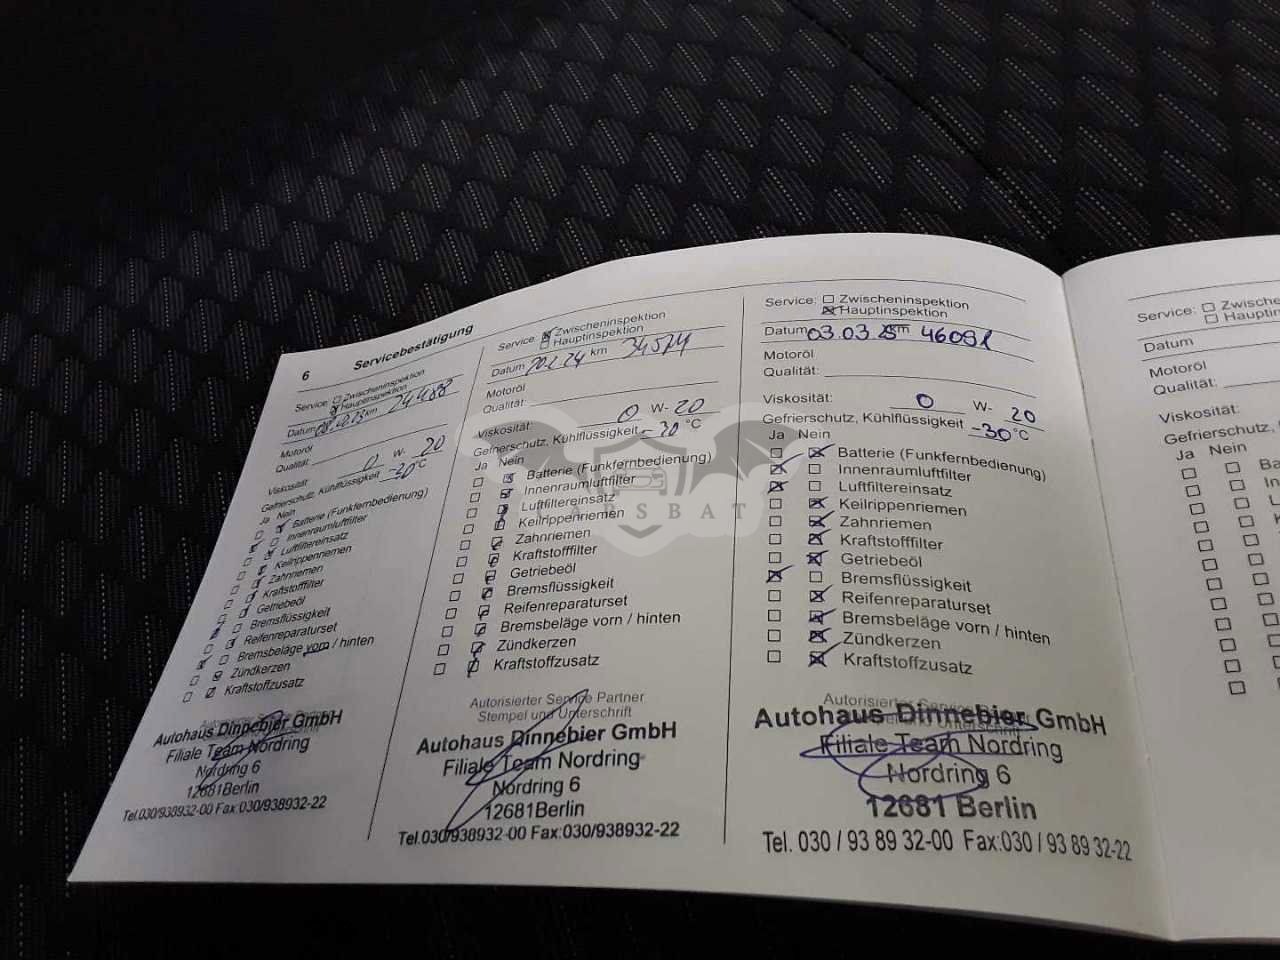 6 Servicebestätigung
Service: Zwischeninspektion
Hauptinspektion
Datum km 24488
Motoröl
Qualität:
Viskosität: 0 W- 20
Gefrierschutz, Kühlflüssigkeit -30 °C
Ja Nein
Batterie (Funkfernbedienung)
Innenraumluftfilter
Luftfiltereinsatz
Keilrippenriemen
Zahnriemen
Kraftstofffilter
Getriebeöl
Bremsflüssigkeit
Reifenreparaturset
Bremsbeläge vorn / hinten
Zündkerzen
Kraftstoffzusatz
Autorisierter Service Partner
Autohaus Dinnebier GmbH
Filiale Team Nordring
Nordring 6
12681Berlin
Tel.030/938932-00 Fax:030/938932-22
Service: Zwischeninspektion
Hauptinspektion
Datum km 34574
Motoröl
Qualität:
Viskosität: 0 W- 20
Gefrierschutz, Kühlflüssigkeit -30 °C
Ja Nein
Batterie (Funkfernbedienung)
Innenraumluftfilter
Luftfiltereinsatz
Keilrippenriemen
Zahnriemen
Kraftstofffilter
Getriebeöl
Bremsflüssigkeit
Reifenreparaturset
Bremsbeläge vorn / hinten
Zündkerzen
Kraftstoffzusatz
Autorisierter Service Partner
Stempel und Unterschrift
Autohaus Dinnebier GmbH
Filiale Team Nordring
Nordring 6
12681Berlin
Tel.030/938932-00 Fax:030/938932-22
Service: Zwischeninspektion
Hauptinspektion
Datum 03.03 25 km 46091
Motoröl
Qualität:
Viskosität: 0 W- 20
Gefrierschutz, Kühlflüssigkeit -30 °C
Ja Nein
Batterie (Funkfernbedienung)
Innenraumluftfilter
Luftfiltereinsatz
Keilrippenriemen
Zahnriemen
Kraftstofffilter
Getriebeöl
Bremsflüssigkeit
Reifenreparaturset
Bremsbeläge vorn / hinten
Zündkerzen
Kraftstoffzusatz
Autorisierter Service
Autohaus Dinnebier GmbH
Filiale Team Nordring
Nordring 6
12681 Berlin
Tel. 030 / 93 89 32-00 Fax:030 / 93 89 32-22
Service: Zwische
Hauptin
Datum
Motoröl
Qualität:
Viskosität:
Gefrierschutz, K
Ja Nein
Ba
In
L